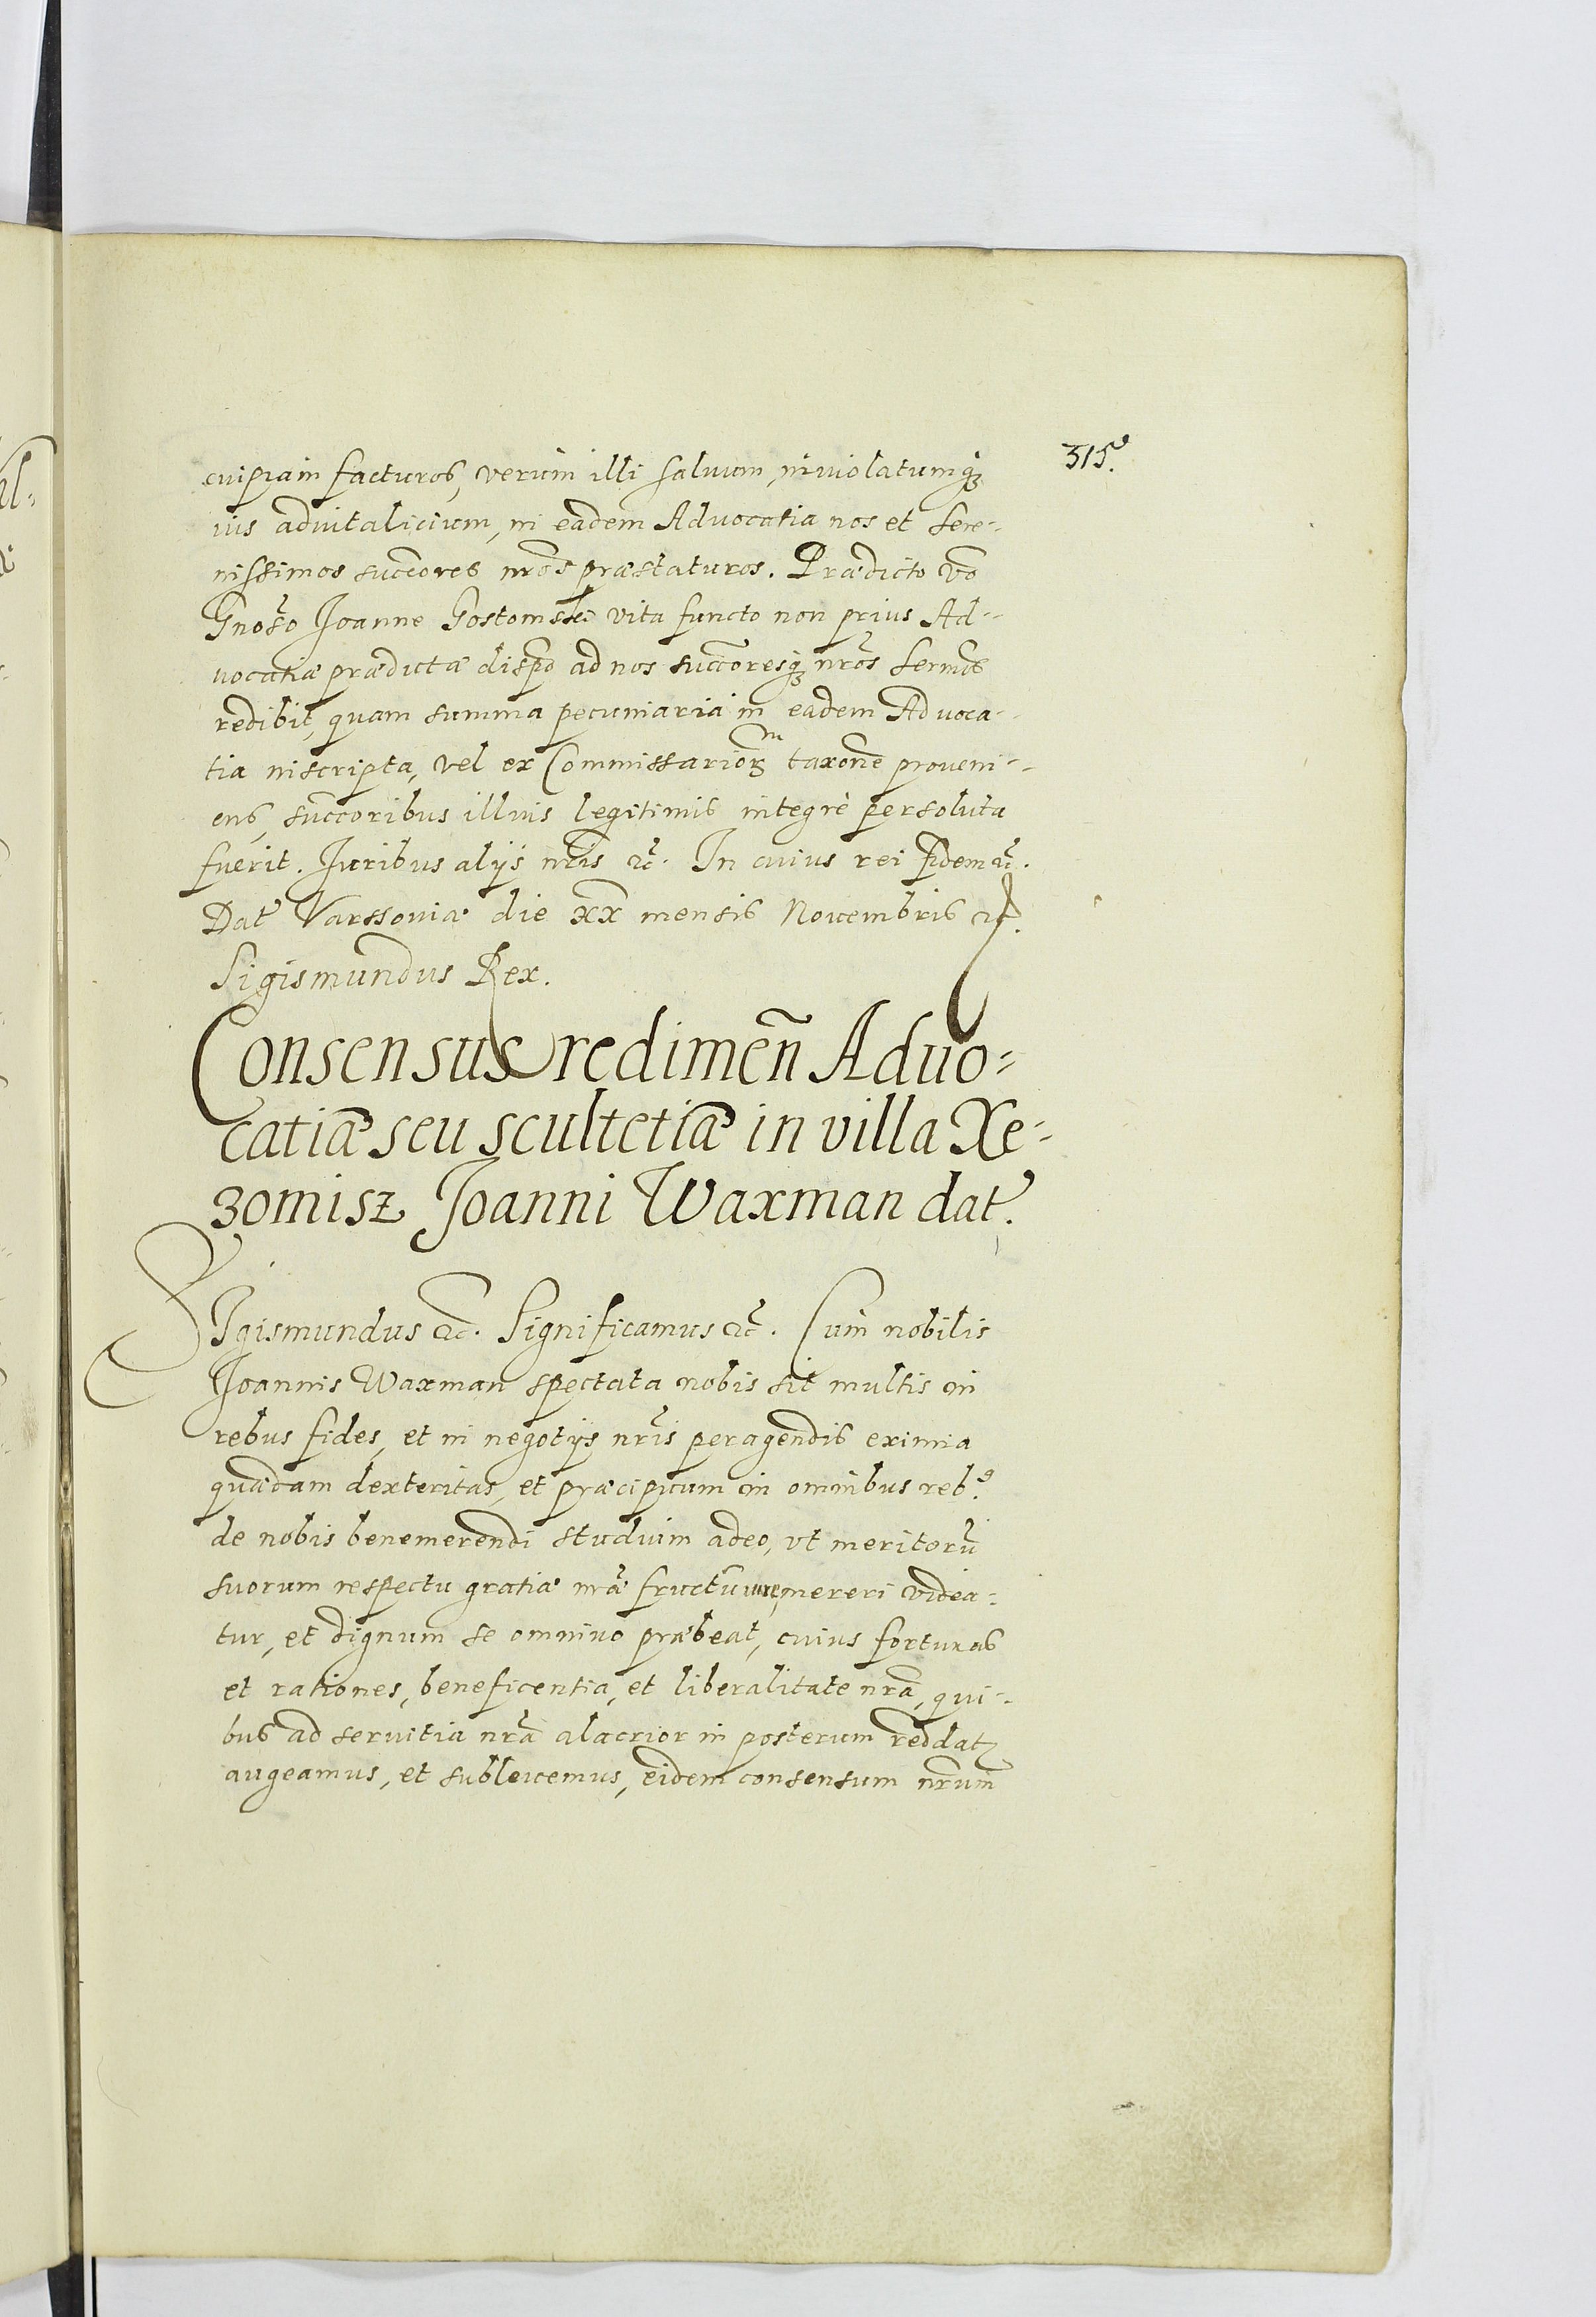 315.
cuipiam facturos, verum illi saluum, inuiolatumq₃
ius aduitalicium, in eadem Aduocatia nos et Sere-
nissimos succores nros præstaturos. Prædicto vo
Gnoso Joanne Gostomski vita functo non prius Ad-
uocatiæ prædictæ dispo ad nos succoresq₃ nros Sermos
redibit, quam summa pecuniaria in eadem Aduoca-
tia inscripta, vel ex Commissarioru taxone proueni-
ens, succoribus illius legitimis integrè persoluta
fuerit. Juribus alijs nris &c. In cuius rei fidem &c.
Dat Varssouiæ die XX mensis Nouembris &c.
Sigismundus Rex.
Consensus redimen Aduo-
catiæ seu scultetiæ in villa Xe-
zomisz Joanni Waxman dat.
SIgismundus &c. Significamus &c. Cum nobilis
Joannis Waxman spectata nobis sit multis in
rebus fides, et in negotijs nris peragendis eximia
quædam dexteritas, et præcipuum in omnibus reb9
de nobis benemerendi studium adeo, vt meritorū
suorum respectu gratiæ nræ fructum mereri videa-
tur, et dignum se omnino præbeat, cuius fortunas
et rationes, beneficentia, et liberalitate nra, qui-
bus ad seruitia nra alacrior in posterum reddat
augeamus, et subleuemus, eidem consensum nrum